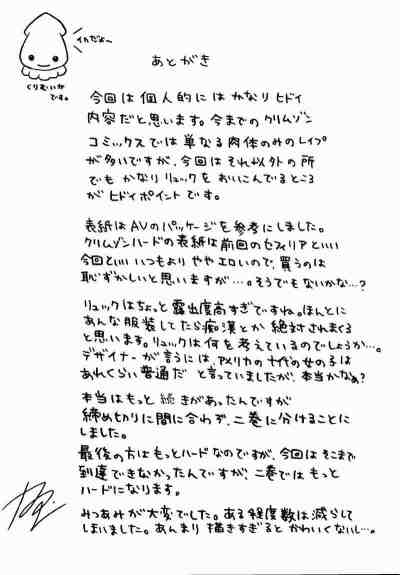 イカだよ〜
くりむぞんか
です。
あとがき
今回は個人的にはかなりヒドイ
内容だと思います。今までのクリムゾン
コミックスでは単なる肉体のみのレイプ
が多いですが、今回はそれ以外の所
でもかなりリュックをおいこんでるところ
がヒドイポイントです。
表紙はAVのパッケージを参考にしました。
クリムゾンハードの表紙は前回のセフィリアといい
今回といいいつもよりややエロいので、買うのは
恥ずかしいと思いますが…。そうでもないかな…?
リュックはちょっと露出度高すぎですね。ほんとに
あんな服装してたら痴漢とか絶対されまくる
と思います。リュックは何を考えているのでしょうか…。
デザイナーが言うには、アメリカの十代の女の子は
あれくらい普通だと言っていましたが、本当かなぁ?
本当はもっと続きがあったんですが
締め切りに間に合わず、二巻に分けることに
しました。
最後の方はもっとハードなのですが、今回はそこまで
到達できなかったんですが、二巻ではもっと
ハードになります。
みつあみが大変でした。ある程度数は減らして
しまいました。あんまり描きすぎるとかわいくないし…。